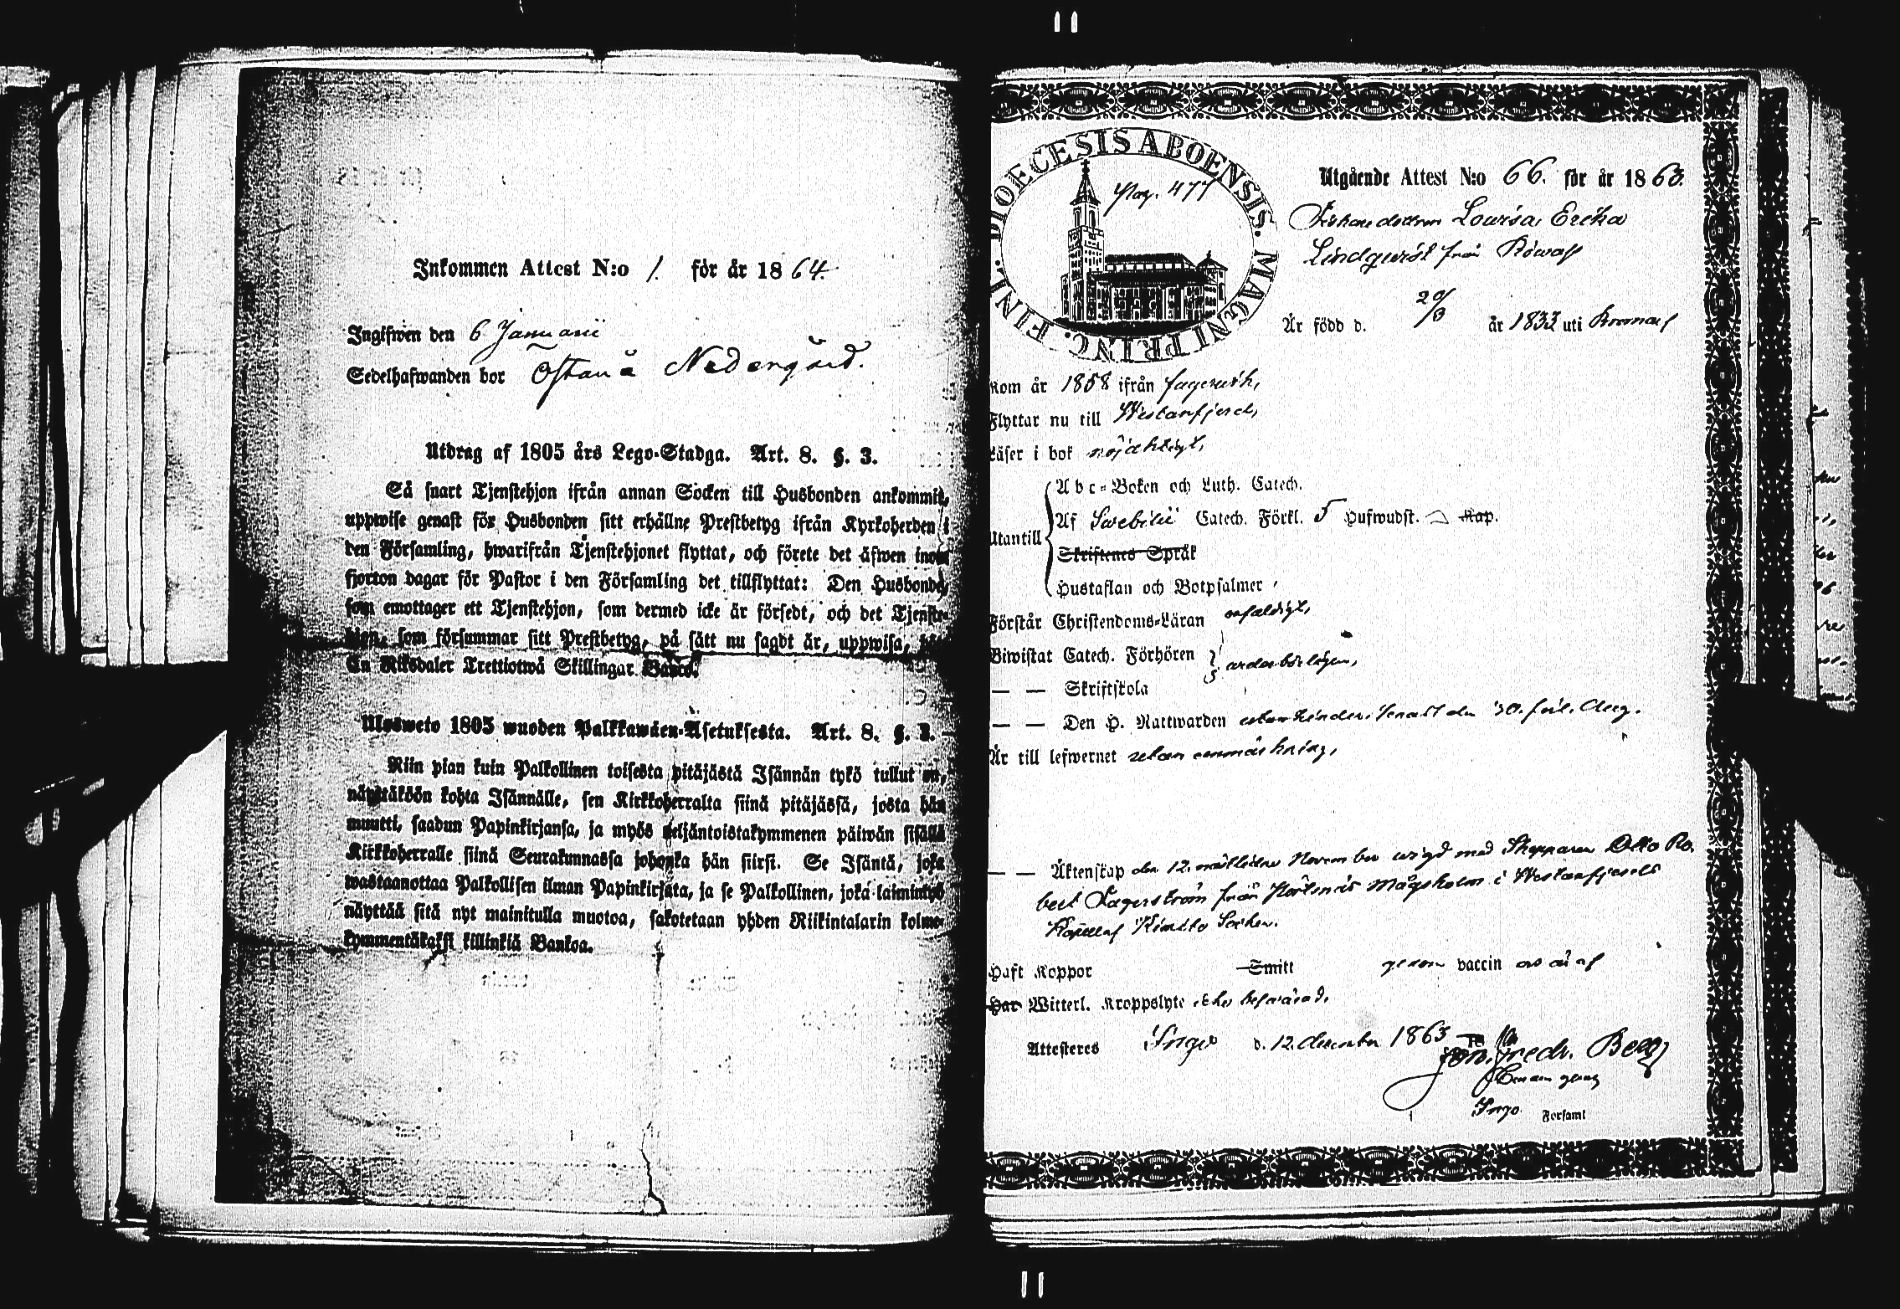 Inkommen Attest N:o 1. för år 1864.
Ingifwen den 6 Januarii
Sedelhafwanden bor Östanå Nedergård.
Utdrag af 1805 års Lego-Stadga. Art. 8. §. 3.
Så snart Tjenstehjon ifrån annan Socken till Husbonden ankommit,
uppwise genast för Husbonden sitt erhållne Prestbetyg ifrån Kyrkoherden i
den Församling, hwarifrån Tjenstehjonet flyttat, och förete det äfwen inom
fjorton dagar för Pastor i den Församling det tillflyttat: Den Husbonde,
som emottager ett Tjenstehjon, som dermed icke är försedt, och det Tjenste-
hjon, som försummar sitt Prestbetyg, på sätt nu sagdt är, uppwisa,
En Riksdaler Trettiotwå Skillingar Banco.
Ulosweto 1805 wuoden Palkkawäen-Asetuksesta. Art. 8. §. 3.
Niin pian kuin Palkollinen toisesta pitäjästä Isännän tykö tullut on,
näyttäköön kohta Isännälle, sen Kirkkoherralta siinä pitäjässä, josta hän
muutti, saadun Papinkirjansa, ja myös neljäntoistakymmenen päiwän sisällä
Kirkkoherralle siinä Seurakunnassa johonka hän siirsi. Se Isäntä, joka
wastaanottaa Palkollisen ilman Papinkirjata, ja se Palkollinen, joka laiminlyö
näyttää sitä nyt mainitulla muotoa, sakotetaan yhden Riikintalarin kolme-
kymmentäkaksi killinkiä Bankoa.
DIOECESIS ABOENSIS. MAGNI PRINC. FINL.
Pag. 477
Utgående Attest N:o 66. för år 1863.
Lovisa Erika
Lindqvist från
Är född d. 29/3 år 1833 uti Bromarf
Kom år 1858 ifrån Fagervik,
Flyttar nu till Westanfjerd,
Läser i bok nöjaktigt,
Utantill
Abc-Boken och Luth. Catech.
Af Svebilii Catech. Förkl. 5 Hufwudst. Kap.
Skriftenes Språk
Hustaflan och Botpsalmer
Förstår Christendoms-Läran enfaldigt,
Biwistat Catech. Förhören
— — Skriftskola ordentligen,
— — Den H. Nattwarden utan hinder, senast den 30. sistl. Aug.
Är till lefwernet utan anmärkning,
— — Äktenskap den 12. November wigd med Skepparen Otto Ro-
bert Lagerström från Mågsholm i Westanfjerds
Kapell af Kimito Socken.
Haft Koppor Smitt genom vaccin
Har Witterl. Kroppslyte icke beswärad.
Attesteres Ingo d. 12. december 1863 Fredr. Berg
Ingo Församl